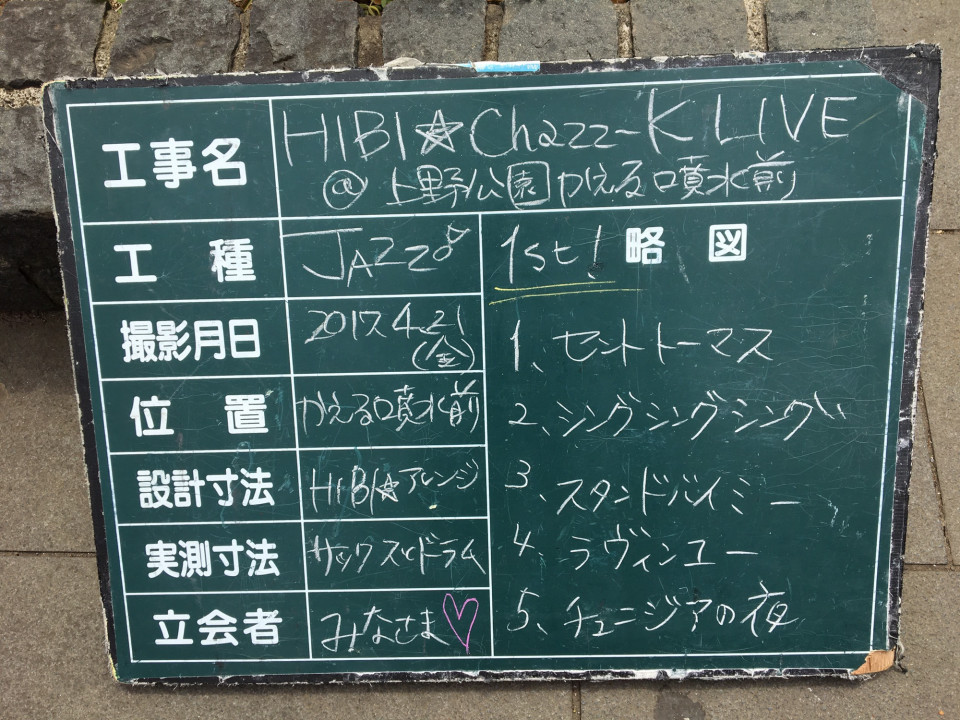 工事名 HIBI☆Chazz-K LIVE
@上野公園かえる噴水前
工種 JAZZ♪
撮影月日 2017.4.21
(金)
位置 かえる噴水前
設計寸法 HIBI☆アレンジ
実測寸法 サックスとドラム
立会者 みなさま♡
1st! 略図
1、セントトーマス
2、シングシングシング
3、スタンドバイミー
4、ラヴィンユー
5、チュニジアの夜